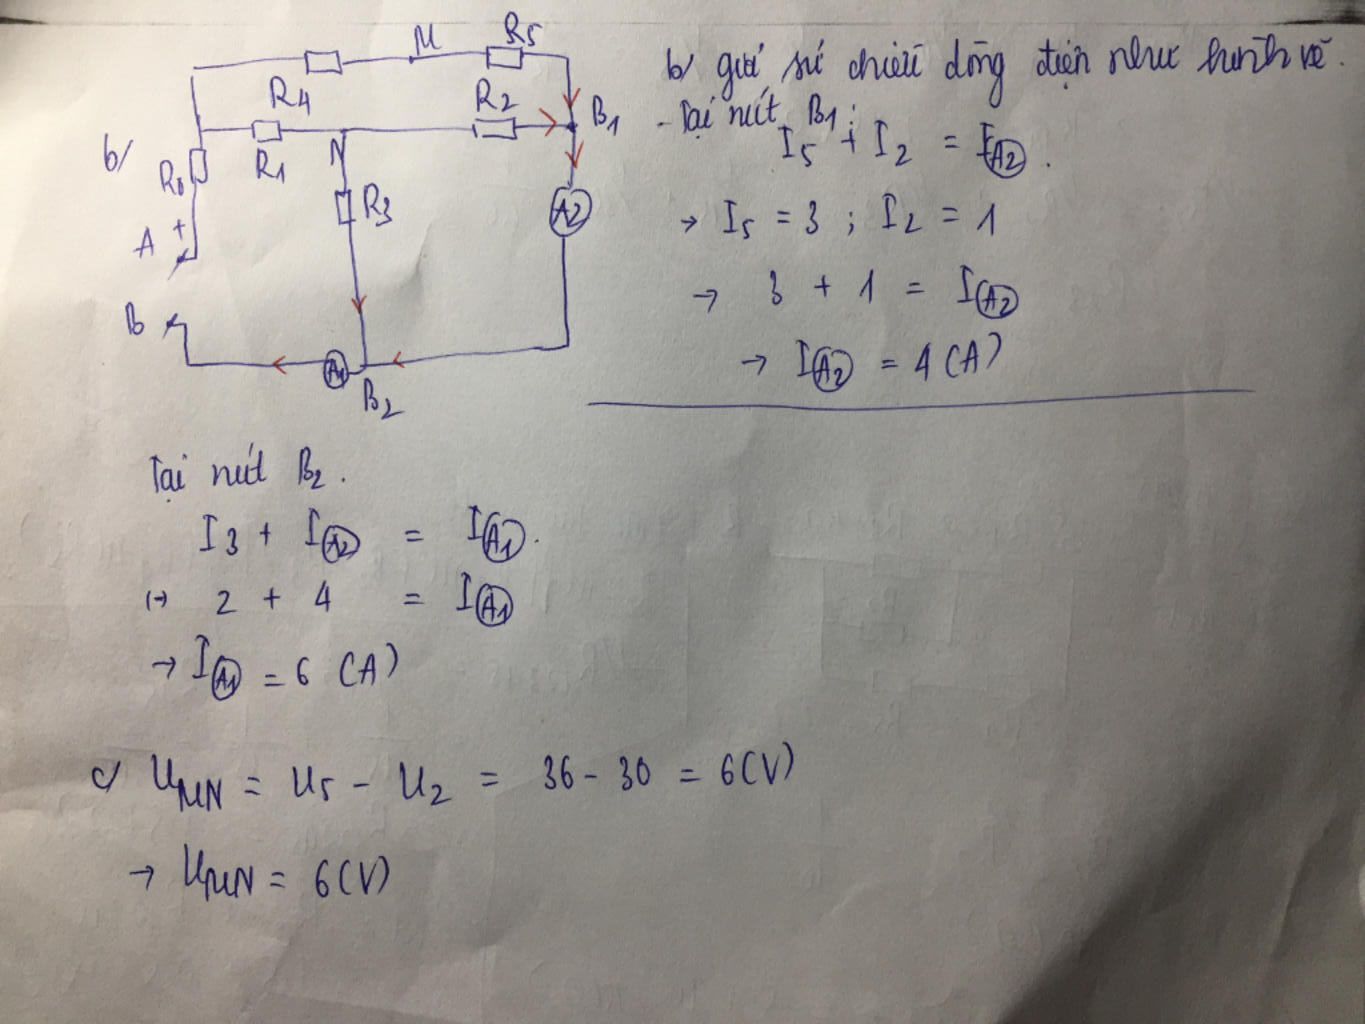 b/
R4
M
R5
R0
R1
N
R2
B1
A +
R3
A2
B
A1
B2
b/ giả sử chiều dòng điện như hình vẽ.
- Tại nút B1:
I5 + I2 = I(A2).
→ I5 = 3 ; I2 = 1
→ 3 + 1 = I(A2)
→ I(A2) = 4 (A)
Tại nút B2.
I3 + I(A2) = I(A1).
(→ 2 + 4 = I(A1)
→ I(A1) = 6 (A)
c/ UMN = U5 - U2 = 36 - 30 = 6(V)
→ UMN = 6(V)